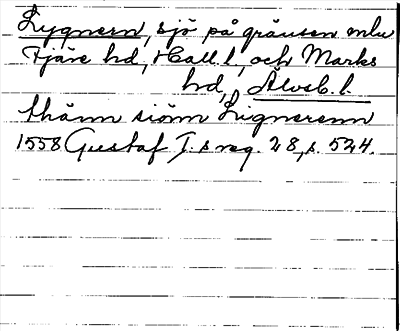 Lygnern, sjö på gränsen mlu
Fjäre hd, Hall. l., och Marks
hd, Älvsb. l.
thänn siönn Lignerenn
1558 Gustaf I.s reg. 28, s. 524.